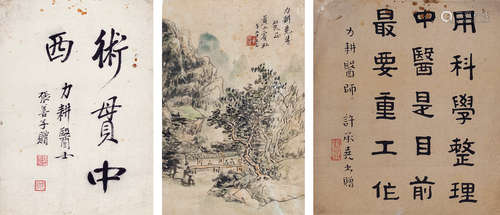 術貫中
西
力耕醫士
張善子贈
力耕先生
笑正
黃賓虹
用科學整理
中醫是目前
最要重工作
力耕醫師
許承堯書贈